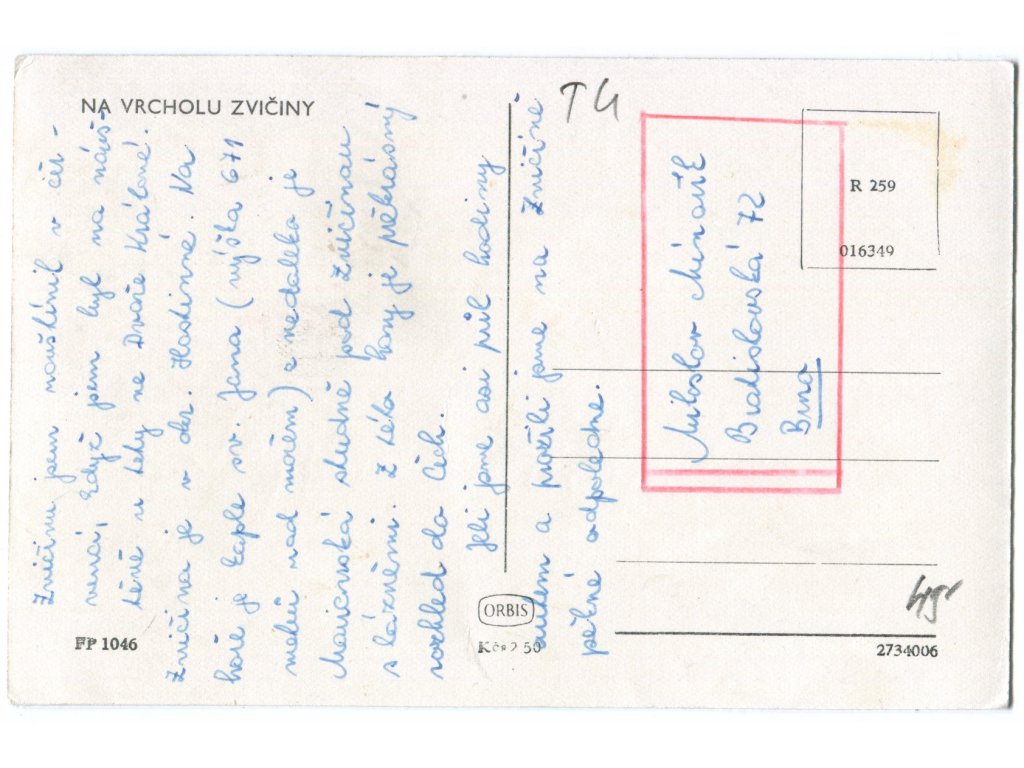 NA VRCHOLU ZVIČINY
Zvičinu jsem navštívil v čer-
venci, když jsem byl na návš-
těvě u tety ve Dvoře Králové.
Zvičina je v okr. Hostinné. Na
hoře je kaple sv. Jana (výška 671
metrů nad mořem) a nedaleko je
studně pod Zvičinou
s lázněmi. Z této hory je překrásný
rozhled do Čech.
Jeli jsme asi půl hodiny
autem a prožili jsme na Zvičině
pěkné odpoledne.
T4
R 259
016349
Miloslav
Bratislavská 72
Brno
FP 1046
ORBIS
Kčs 2 50
2734006